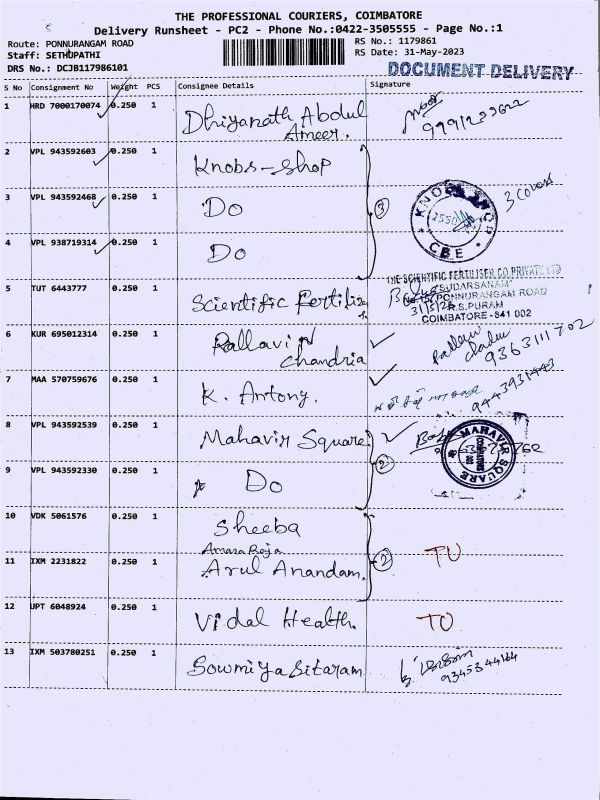 THE PROFESSIONAL COURIERS, COIMBATORE
Delivery Runsheet - PC2 - Phone No.:0422-3505555 - Page No.:1
Route: PONNURANGAM ROAD
RS No.: 1179861
Staff: SETHUPATHI
RS Date: 31-May-2023
DRS No.: DCJB117986101
DOCUMENT DELIVERY
S No Consignment No Weight PCS Consignee Details Signature
1 HRD 7000170074 0.250 1 Dhiyanath Abdul
Ameer.
9991233622
2 VPL 943592603 0.250 1 Knobs-shop
3 VPL 943592468 0.250 1 Do
3
KNOBS SHOP
CBE
3 covers
4 VPL 938719314 0.250 1 Do
THE SCIENTIFIC FERTILISER CO PRIVATE LTD
5 TUT 6443777 0.250 1 Scientific Fertiliz
"SUDARSANAM"
PONNURANGAM ROAD
31/5/23 R.S.PURAM
COIMBATORE-641 002
6 KUR 695012314 0.250 1 Pallavi
Chandria
Pallavi
9363111702
7 MAA 570759676 0.250 1 K. Antony.
9443931443
8 VPL 943592539 0.250 1 Mahavir Square
MAHAVIR SQUARE
2
9 VPL 943592330 0.250 1 Do
10 VDK 5061576 0.250 1 Sheeba
Amara Raja
11 IXM 2231822 0.250 1 Arul Anandam.
2
TO
12 UPT 6048924 0.250 1 Vidal Health.
TO
13 IXM 503780251 0.250 1 Sowmiya Sitaram
9345344164